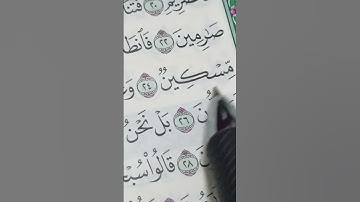 صَّرِيمِ ٢٠ فَتَنَا
صَٰرِمِينَ ٢٢ فَٱنطَ
مِّسْكِينٌ ٢٤ وَ
ونَ ٢٦ بَلْ نَحْنُ
نَ ٢٨ قَالُوا۟ سُبْ